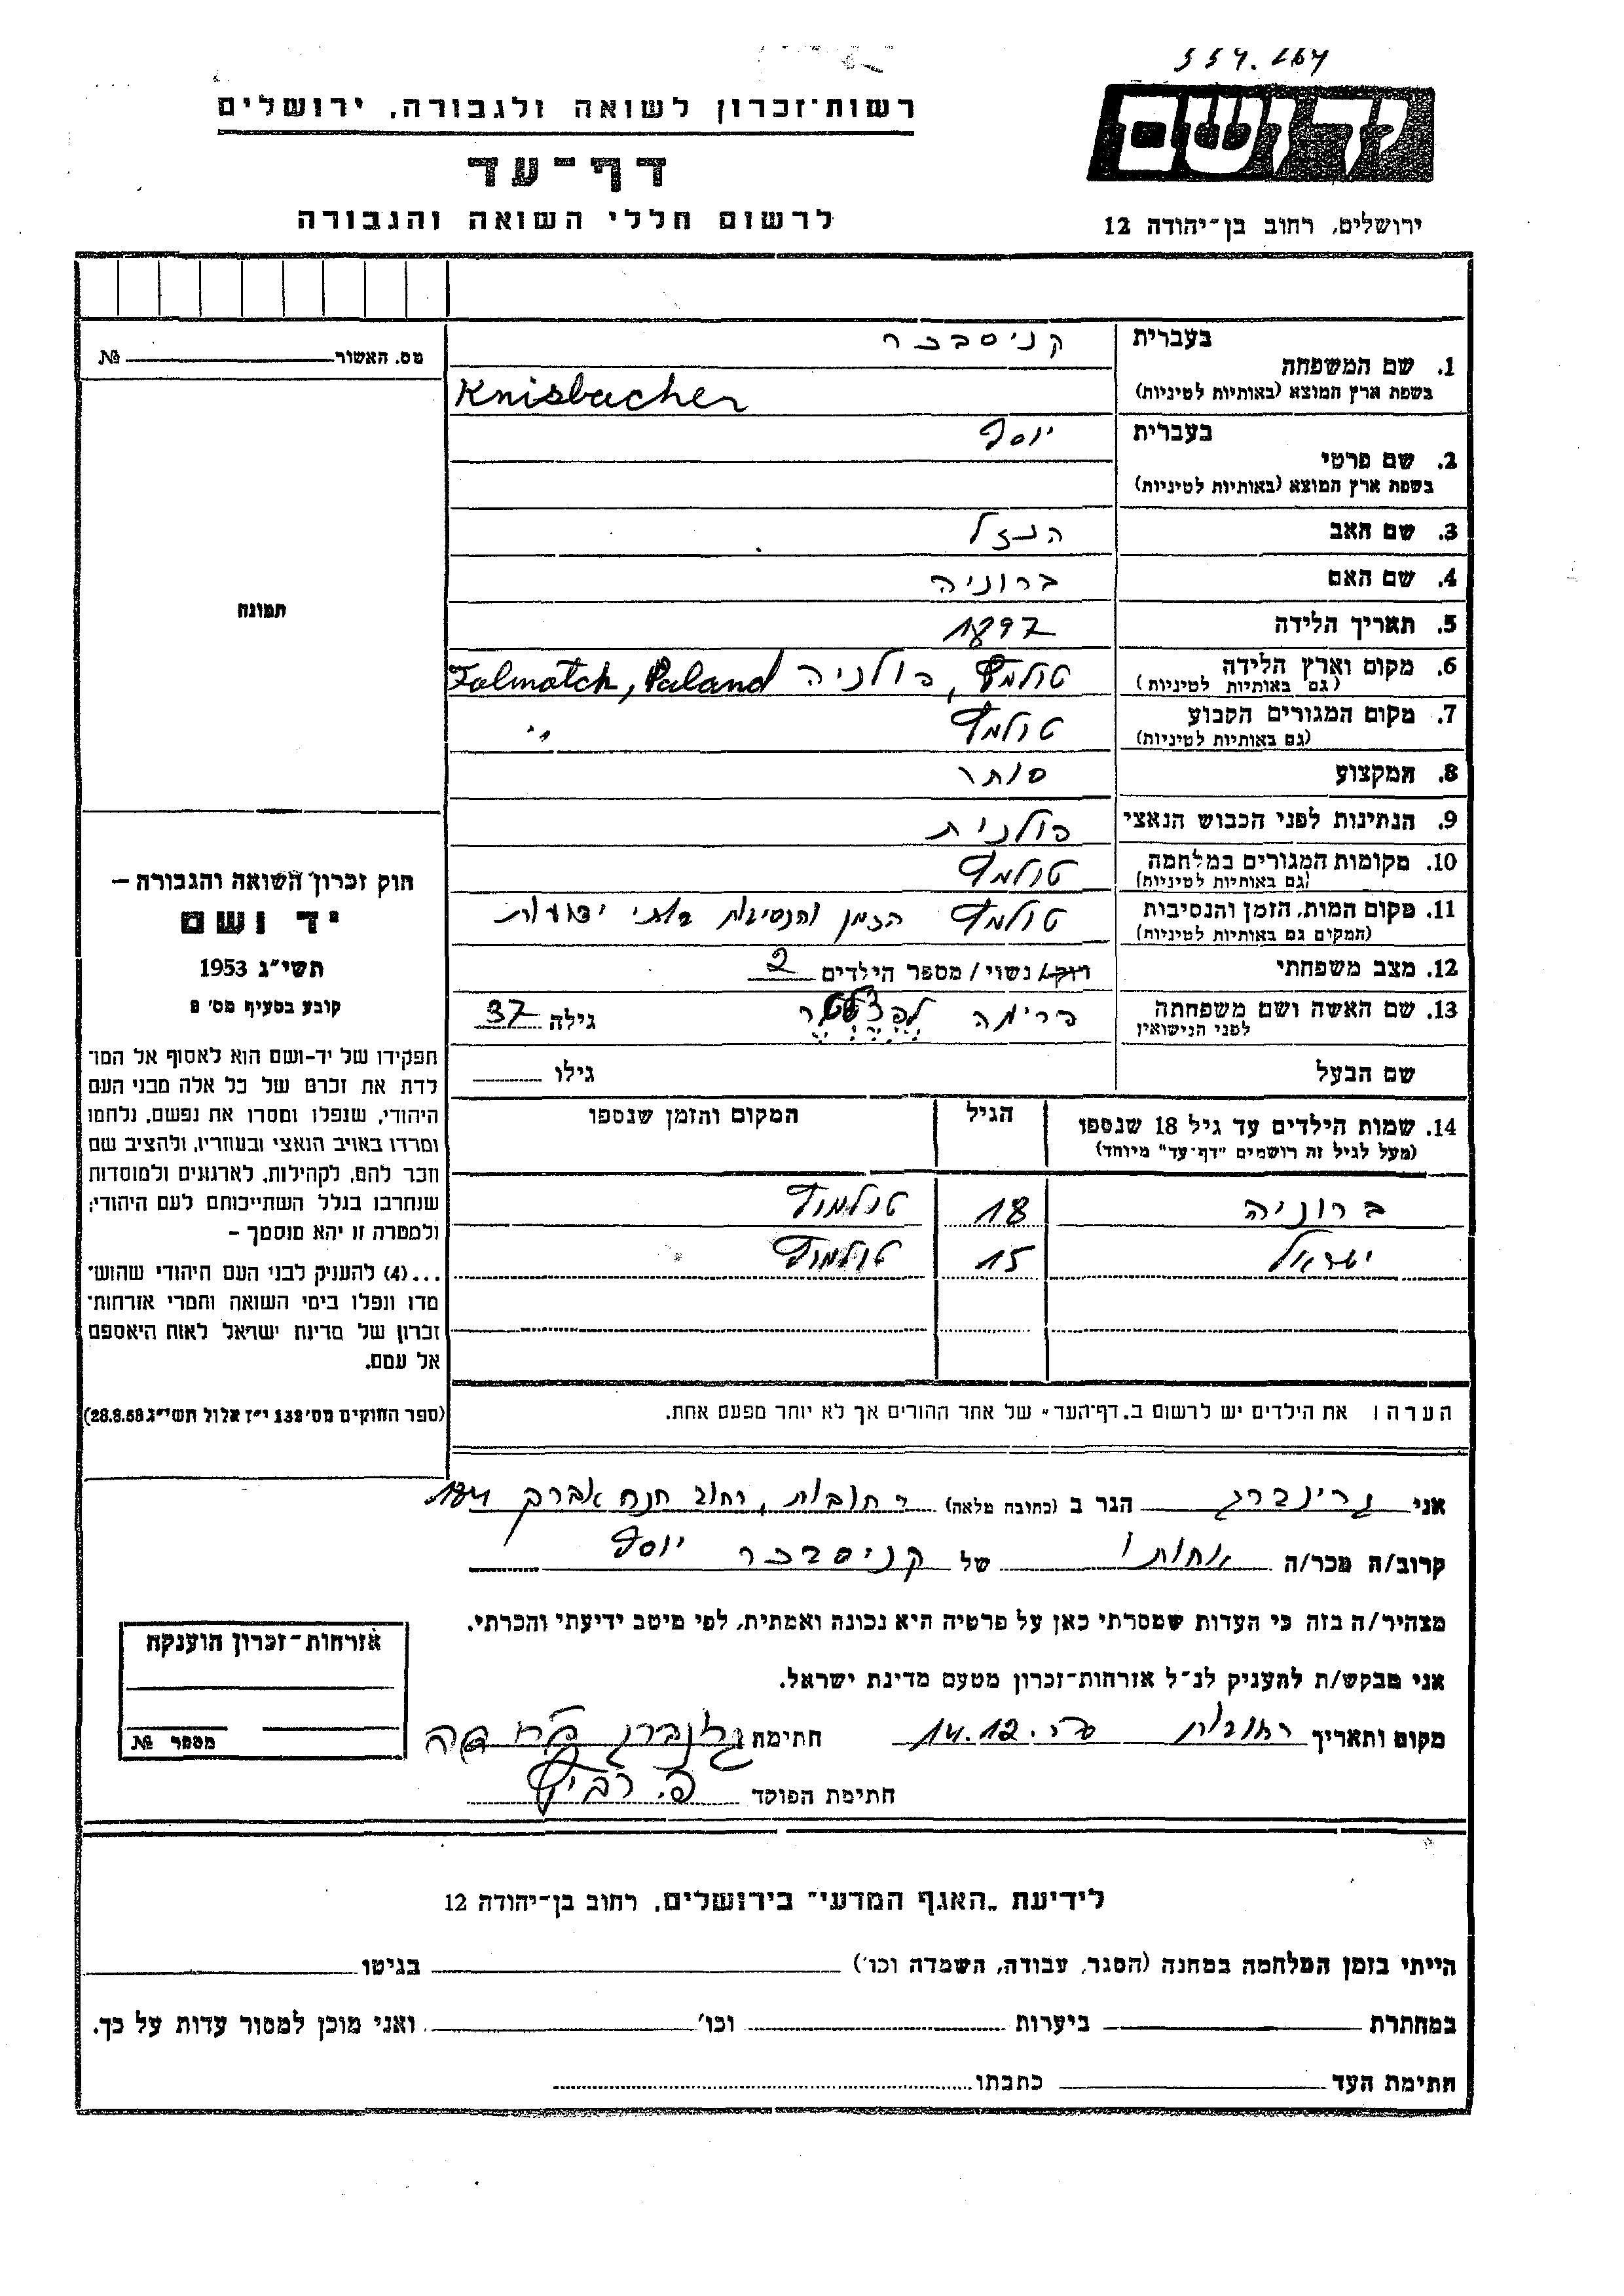 רשות־זכרון לשואה ולגבורה, ירושלים
דף־עד
לרשום חללי השואה והגבורה
יד ושם
ירושלים, רחוב בן־יהודה 12
מס. האשור № 
תמונה
חוק זכרון השואה והגבורה –
יד ושם
תשי״ג 1953
קובע בסעיף מס׳ 2
תפקידו של יד-ושם הוא לאסוף אל המו־
לדת את זכרם של כל אלה מבני העם
היהודי, שנפלו ומסרו את נפשם, נלחמו
ומרדו באויב הנאצי ובעוזריו, ולהציב שם
וזכר להם, לקהילות, לארגונים ולמוסדות
שנחרבו בגלל השתייכותם לעם היהודי;
ולמטרה זו יהא מוסמך –
...(4) להעניק לבני העם היהודי שהוש־
מדו ונפלו בימי השואה והמרי אזרחות־
זכרון של מדינת ישראל לאות היאספם
אל עמם.
(ספר החוקים מס׳ 132 י״ז אלול תשי״ג 28.8.53)
בעברית קניסבכר
1. שם המשפחה
בשפת ארץ המוצא (באותיות לטיניות) Knisbacher
בעברית יוסף
2. שם פרטי
בשפת ארץ המוצא (באותיות לטיניות)
3. שם האב הנזל
4. שם האם ברוניה
5. תאריך הלידה 1897
6. מקום וארץ הלידה טולמץ, פולניה Talmatch, Paland
(גם באותיות לטיניות)
7. מקום המגורים הקבוע טולמץ ״
(גם באותיות לטיניות)
8. המקצוע סוחר
9. הנתינות לפני הכבוש הנאצי פולנית
10. מקומות המגורים במלחמה טולמץ
(גם באותיות לטיניות)
11. מקום המות, הזמן והנסיבות טולמץ הזמן והנסיבות בלתי ידועות
(המקום גם באותיות לטיניות)
12. מצב משפחתי רווק/ נשוי/ מספר הילדים 2
13. שם האשה ושם משפחתה פרימה גילה 37
לפני הנישואין
שם הבעל גילו
14. שמות הילדים עד גיל 18 שנספו הגיל המקום והזמן שנספו
(מעל לגיל זה רושמים "דף־עד" מיוחד)
ברוניה 18 טולמץ
ישראל 15 טולמץ
הערה: את הילדים יש לרשום ב„דף־העד״ של אחד ההורים אך לא יותר מפעם אחת.
אני גרינברג הגר ב (כתובת מלאה) רחובות, רחוב
קרוב/ה מכר/ה אחותו של קניסבכר יוסף
מצהיר/ה בזה כי העדות שמסרתי כאן על פרטיה היא נכונה ואמתית, לפי מיטב ידיעתי והכרתי.
אני מבקש/ת להעניק לנ״ל אזרחות־זכרון מטעם מדינת ישראל.
מקום ותאריך רחובות 14.12 חתימת
חתימת הפוקד
אזרחות־זכרון הוענקה
מספר №
לידיעת „האגף המדעי״ בירושלים, רחוב בן־יהודה 12
הייתי בזמן המלחמה במחנה (הסגר, עבודה, השמדה וכו׳) בגיטו
במחתרת ביערות וכו׳ ואני מוכן למסור עדות על כך.
חתימת העד כתבתו